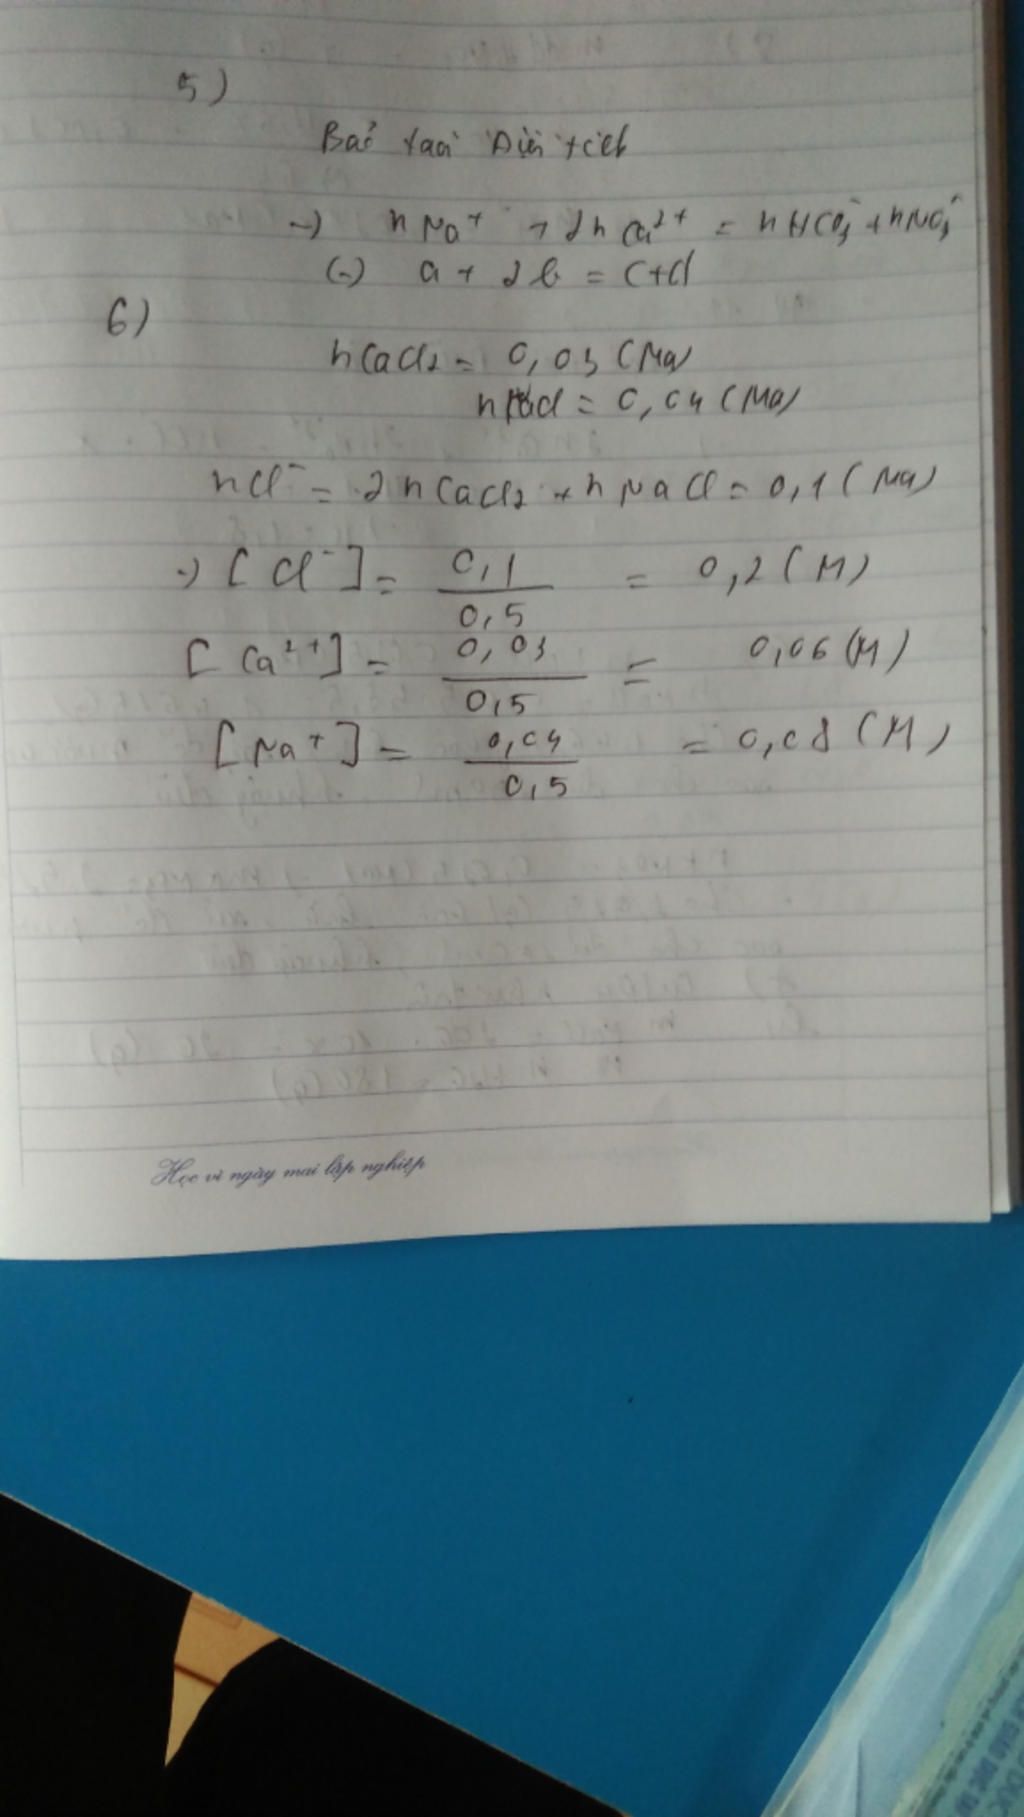 5)
Bảo toàn Điện tích
→) nNa⁺ + 2nCa²⁺ = nHCO₃⁻ + nNO₃⁻
(-) a + 2b = c+d
6)
nCaCl₂ = 0,03 (Mol)
nNaCl = 0,04 (Mol)
nCl⁻ = 2nCaCl₂ + nNaCl = 0,1 (Mol)
→) [Cl⁻] = 0,1 / 0,5 = 0,2 (M)
[Ca²⁺] = 0,03 / 0,5 = 0,06 (M)
[Na⁺] = 0,04 / 0,5 = 0,08 (M)
Học vì ngày mai lập nghiệp